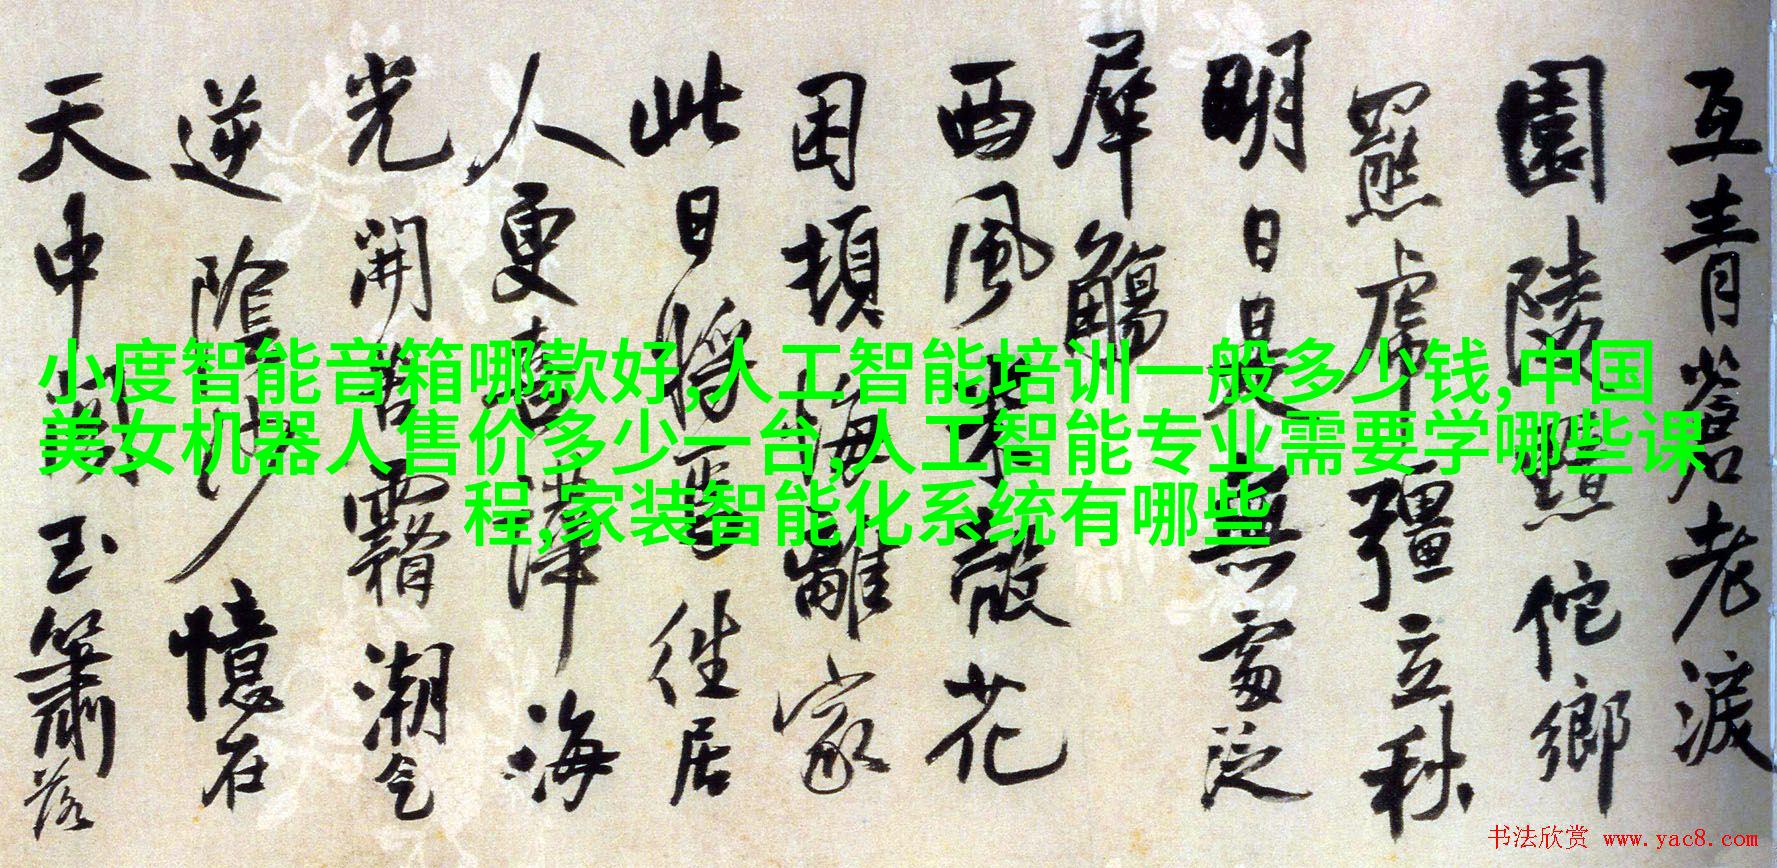 互青老淚
園陵黯佗鄉
羆虎彊立秋
明日是無處泛
犀觴
西風殺花
困頓海離家
此日將往居
人更海
光開霜潮氣
逆陰憶在
天中玉簫落
小度智能音箱哪款好,人工智能培训一般多少钱,中国
美女机器人售价多少一台,人工智能专业需要学哪些课
程,家装智能化系统有哪些
书法欣赏 www.yac8.com